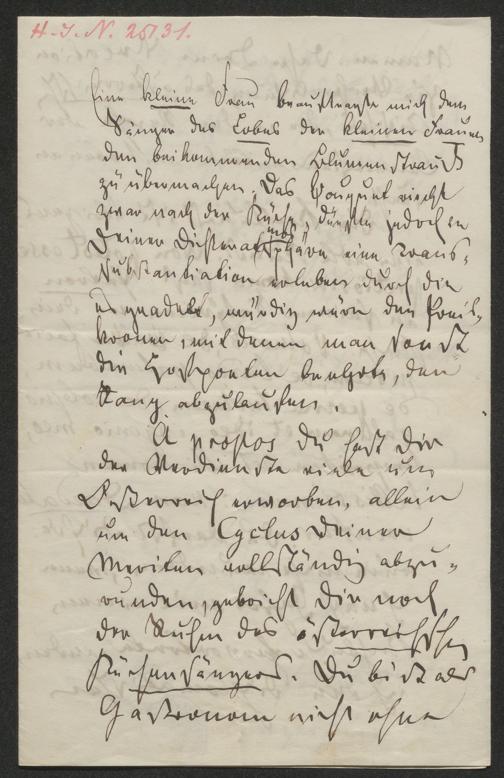 H. I. N. 25131.
Eine kleine Frau beauftragte mich dem
Sänger des Lobes der kleinen Frauen
den beikommenden Blumenstrauß
zu übermachen. Das Bouquet riecht
zwar nach der Küche, dürfte jedoch in
Deiner Dichteratmosphäre eine Trans-
substantiation erleben durch die
es geadelt, würdig wäre den
kronen, mit denen man sonst
die Hofpoeten beehrte, den
Rang abzulaufen.
A propos Du hast Dir
der Verdienste viele um
Österreich erworben, allein
um den Cyclus Deiner
Meriten vollständig abzu-
runden, gebricht Dir noch
der Ruhm des österreichschen
Küchensängers. Du bist als
Gastronom nicht ohne